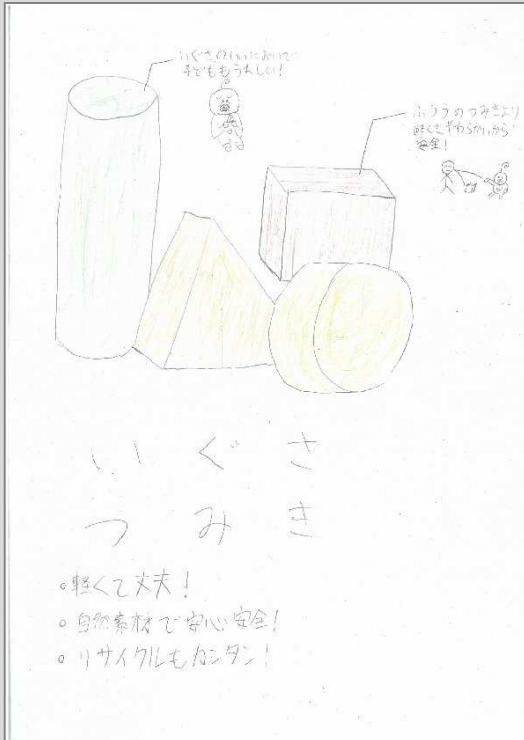 いぐさのいいにおいで
子どももうれしい！
ふつうのつみきより
軽くてやわらかいから
安全！
いぐさ
つみき
○軽くて丈夫！
○自然素材で安心安全！
○リサイクルもカンタン！